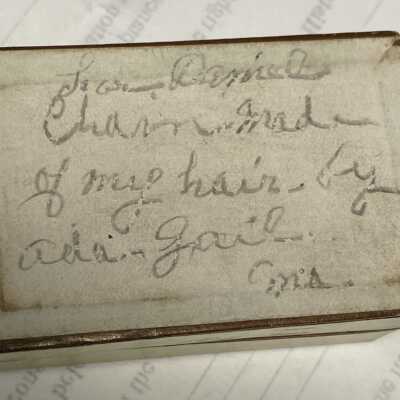 For Daniel
Chain made
of my hair by
ada. Gail
Ma.